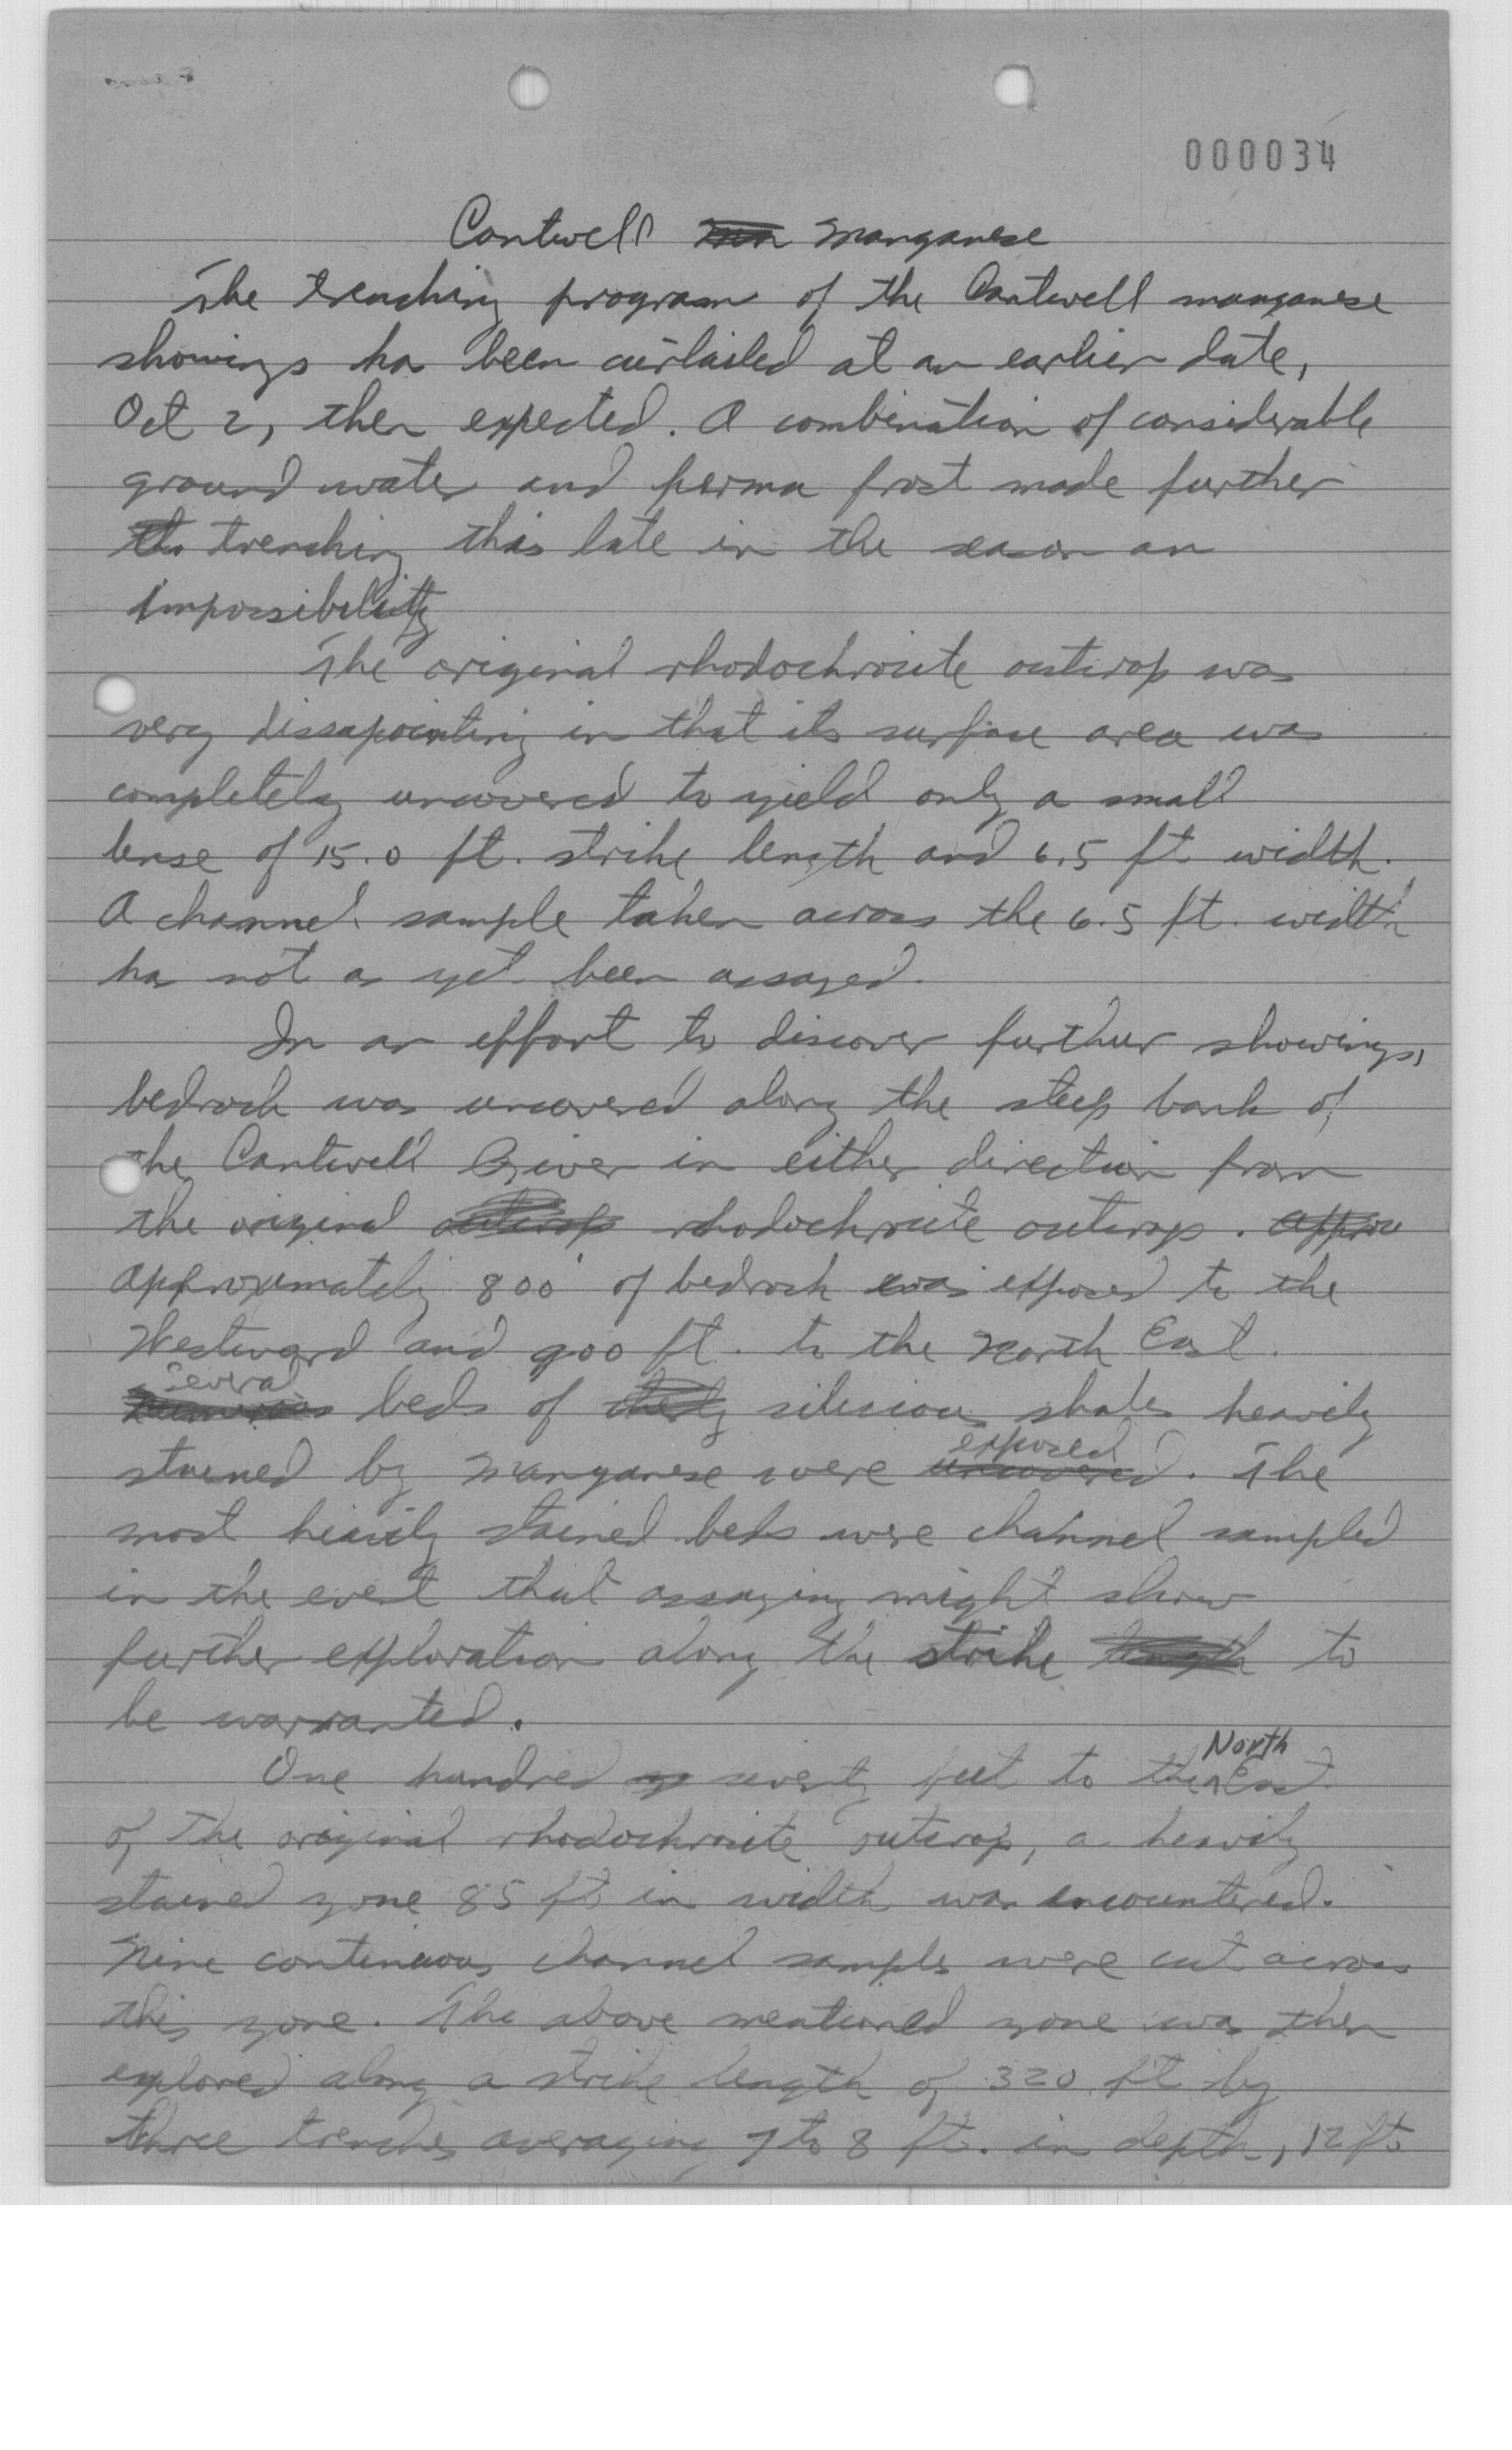 000034
Cantwell Manganese
The trenching program of the Cantwell manganese
showings has been curtailed at an earlier date,
Oct 2, then expected. A combination of considerable
ground water and perma frost made further
trenching this late in the season an
impossibility
The original rhodochrosite outcrop was
very dissapointing in that its surface area was
completely uncovered to yield only a small
lense of 15.0 ft. strike length and 6.5 ft width.
A channel sample taken across the 6.5 ft. width
has not as yet been assayed.
In an effort to discover further showings,
bedrock was uncovered along the steep bank of
the Cantwell River in either direction from
the original rhodochrosite outcrop.
approximately 800' of bedrock was exposed to the
Westward and 900 ft. to the North East.
Several beds of silicious shales heavily
stained by manganese were exposed. The
most heavily stained beds were channel sampled
in the event that assaying might show
further exploration along the strike to
be warranted.
One hundred seventy feet to the North East
of the original rhodochrosite outcrop, a heavily
stained zone 85 ft in width was encountered.
Nine continuous channel samples were cut across
this zone. The above mentioned zone was then
explored along a strike length of 320 ft by
three trenches averaging 7 to 8 ft. in depth, 12 ft.